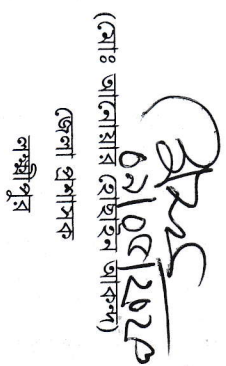 ০৯/০৮/২০২০
(মোঃ আনোয়ার হোছাইন আকন্দ)
জেলা প্রশাসক
লক্ষ্মীপুর